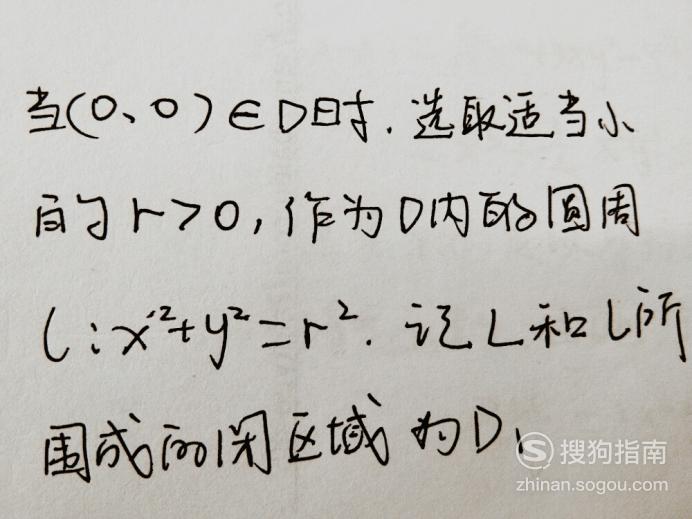 当(0、0)∈D时.选取适当小
的r>0,作为D内的圆周
l:x²+y²=r².记L和l所
围成的闭区域为D₁
S 搜狗指南
zhinan.sogou.com